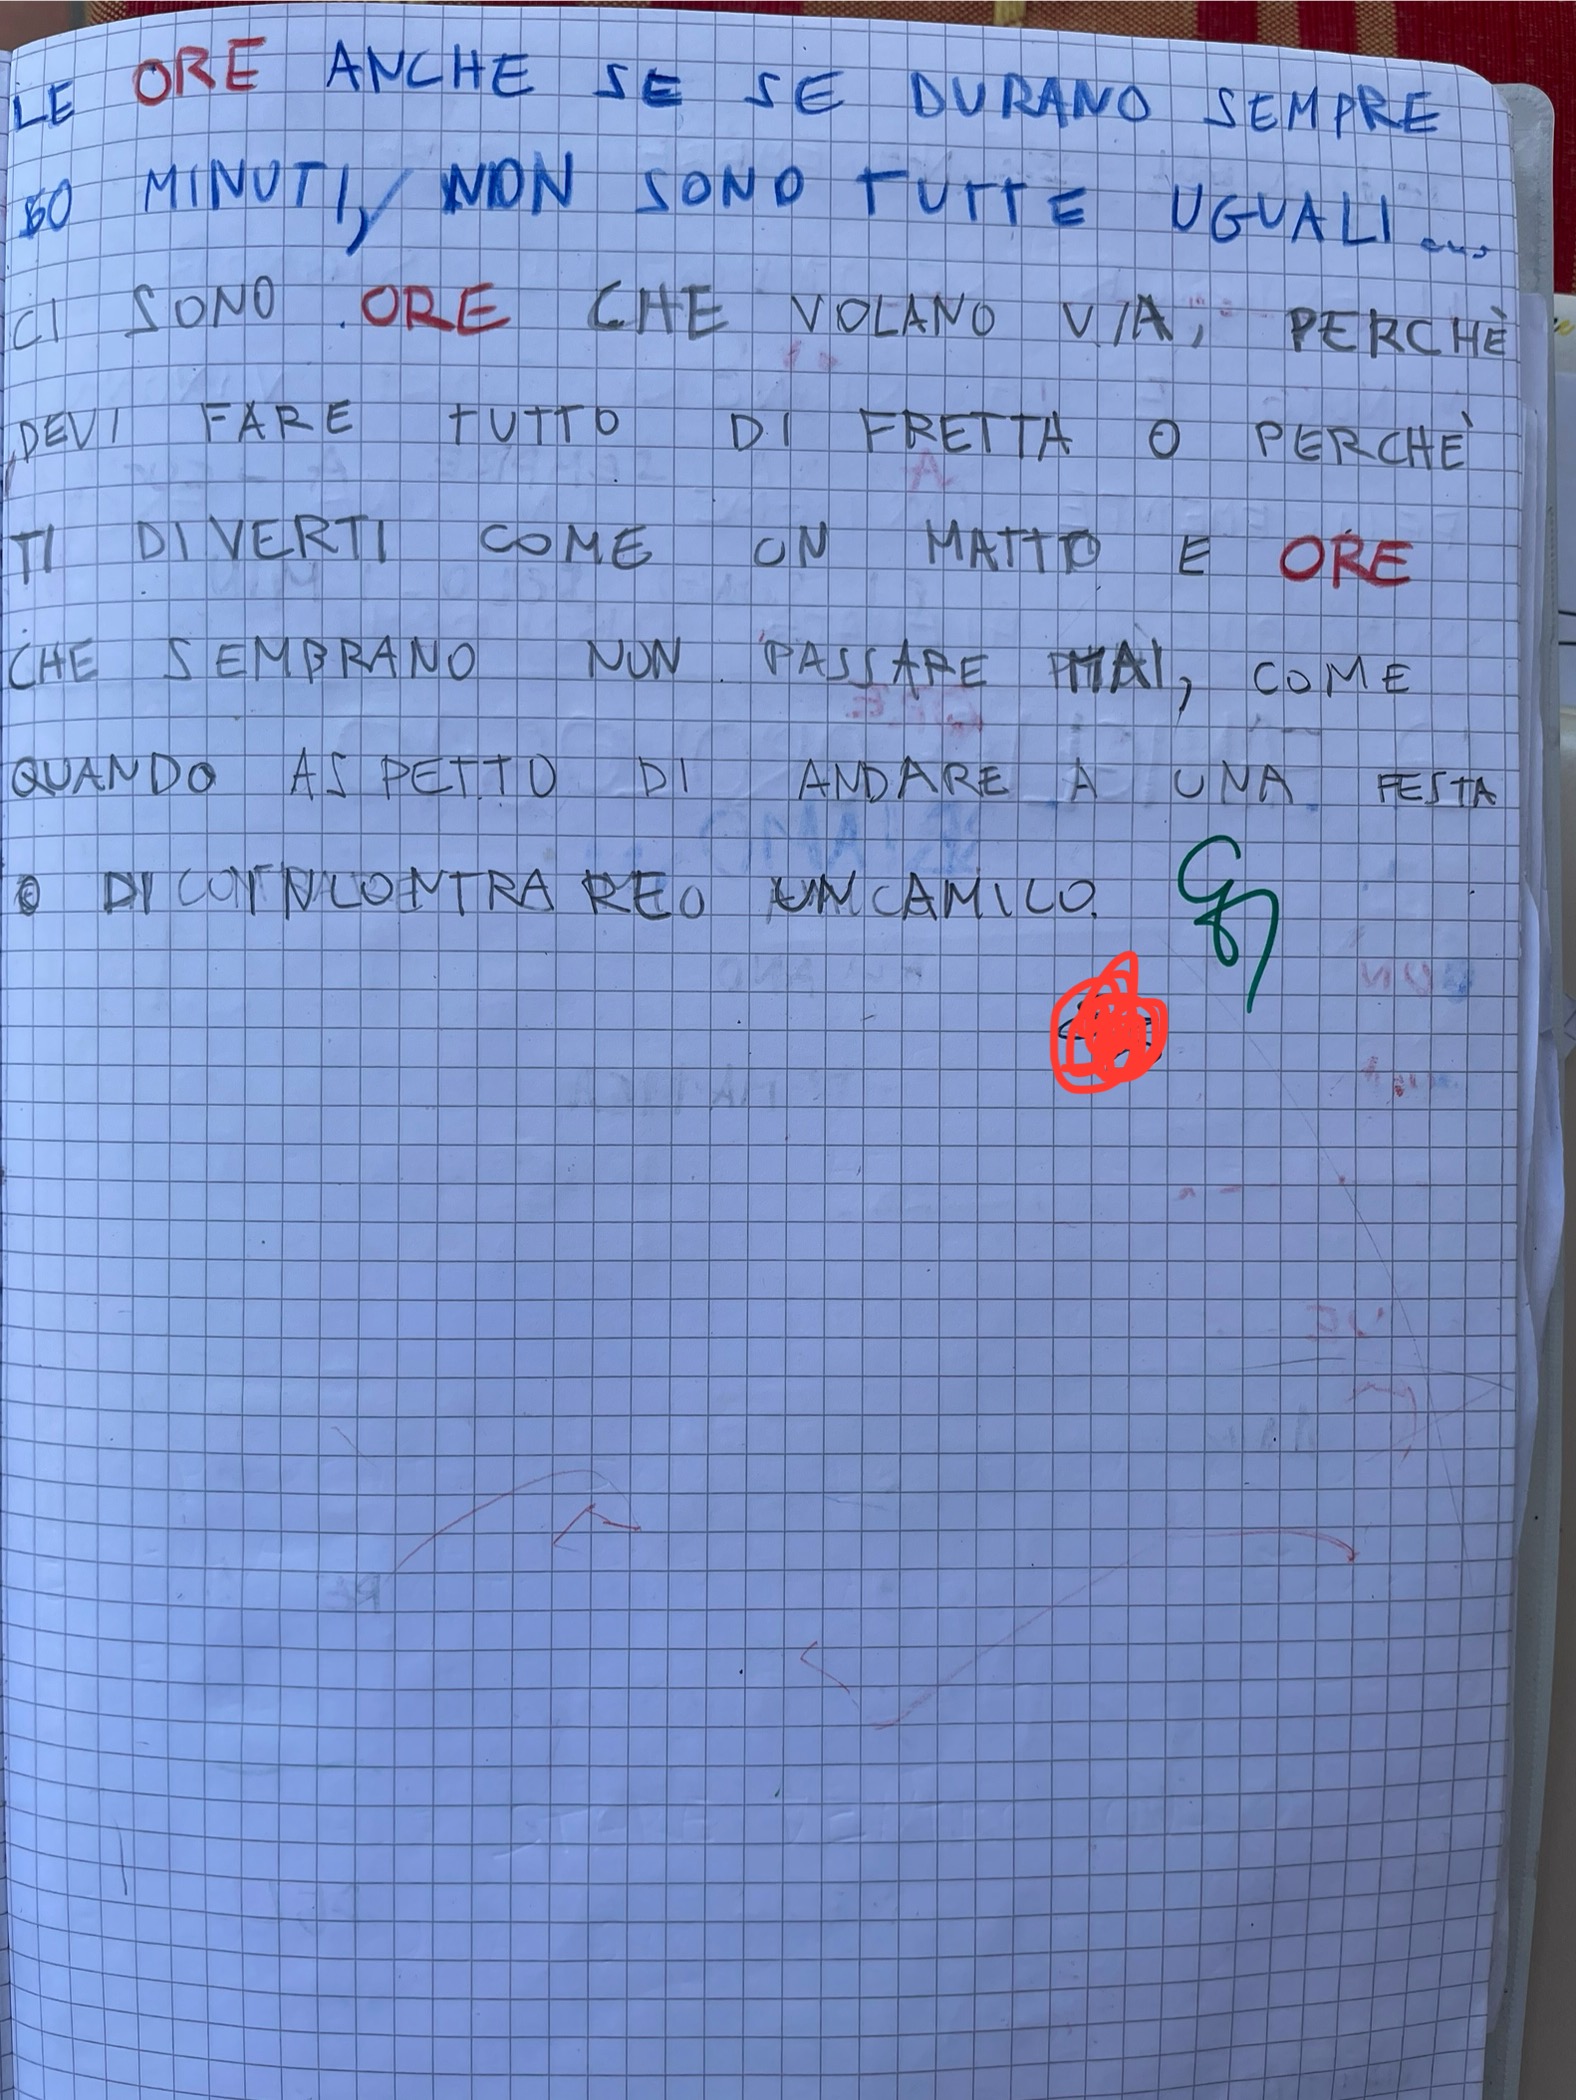 LE ORE ANCHE SE SE DURANO SEMPRE
60 MINUTI, NON SONO TUTTE UGUALI...
CI SONO ORE CHE VOLANO VIA, PERCHÈ
DEVI FARE TUTTO DI FRETTA O PERCHÈ
TI DIVERTI COME UN MATTO E ORE
CHE SEMBRANO NON PASSARE MAI, COME
QUANDO ASPETTO DI ANDARE A UNA FESTA
O DI